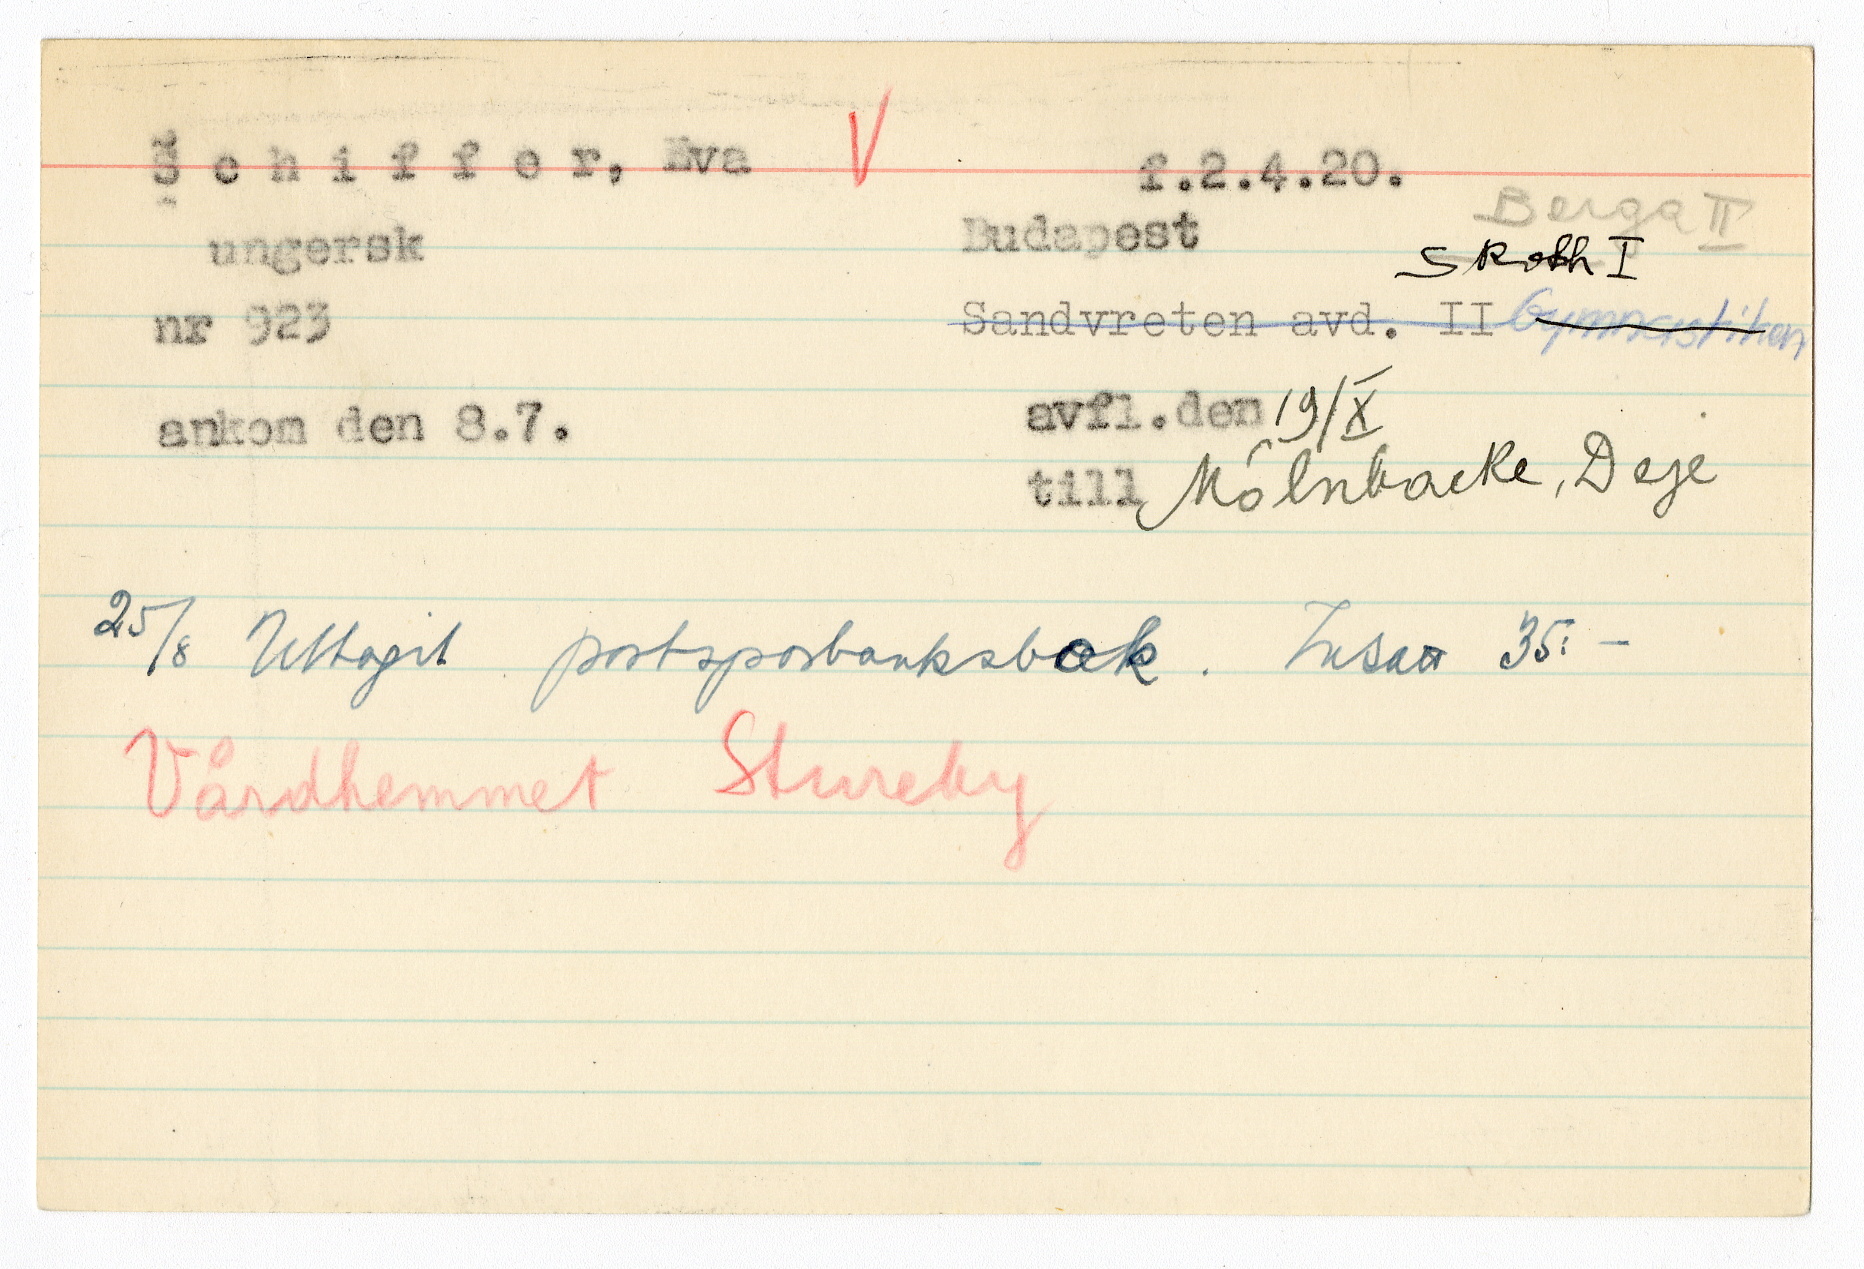 S c h i f f e r, Eva V f.2.4.20.
ungersk Budapest Berga II
S Roth I
nr 923 Sandvreten avd. II Gymnastiken
ankom den 8.7. avfl.den 19/X
till Mölnbacke, Deje
25/8 Uttagit postsparbanksbok. Insatt 35:-
Vårdhemmet Stureby